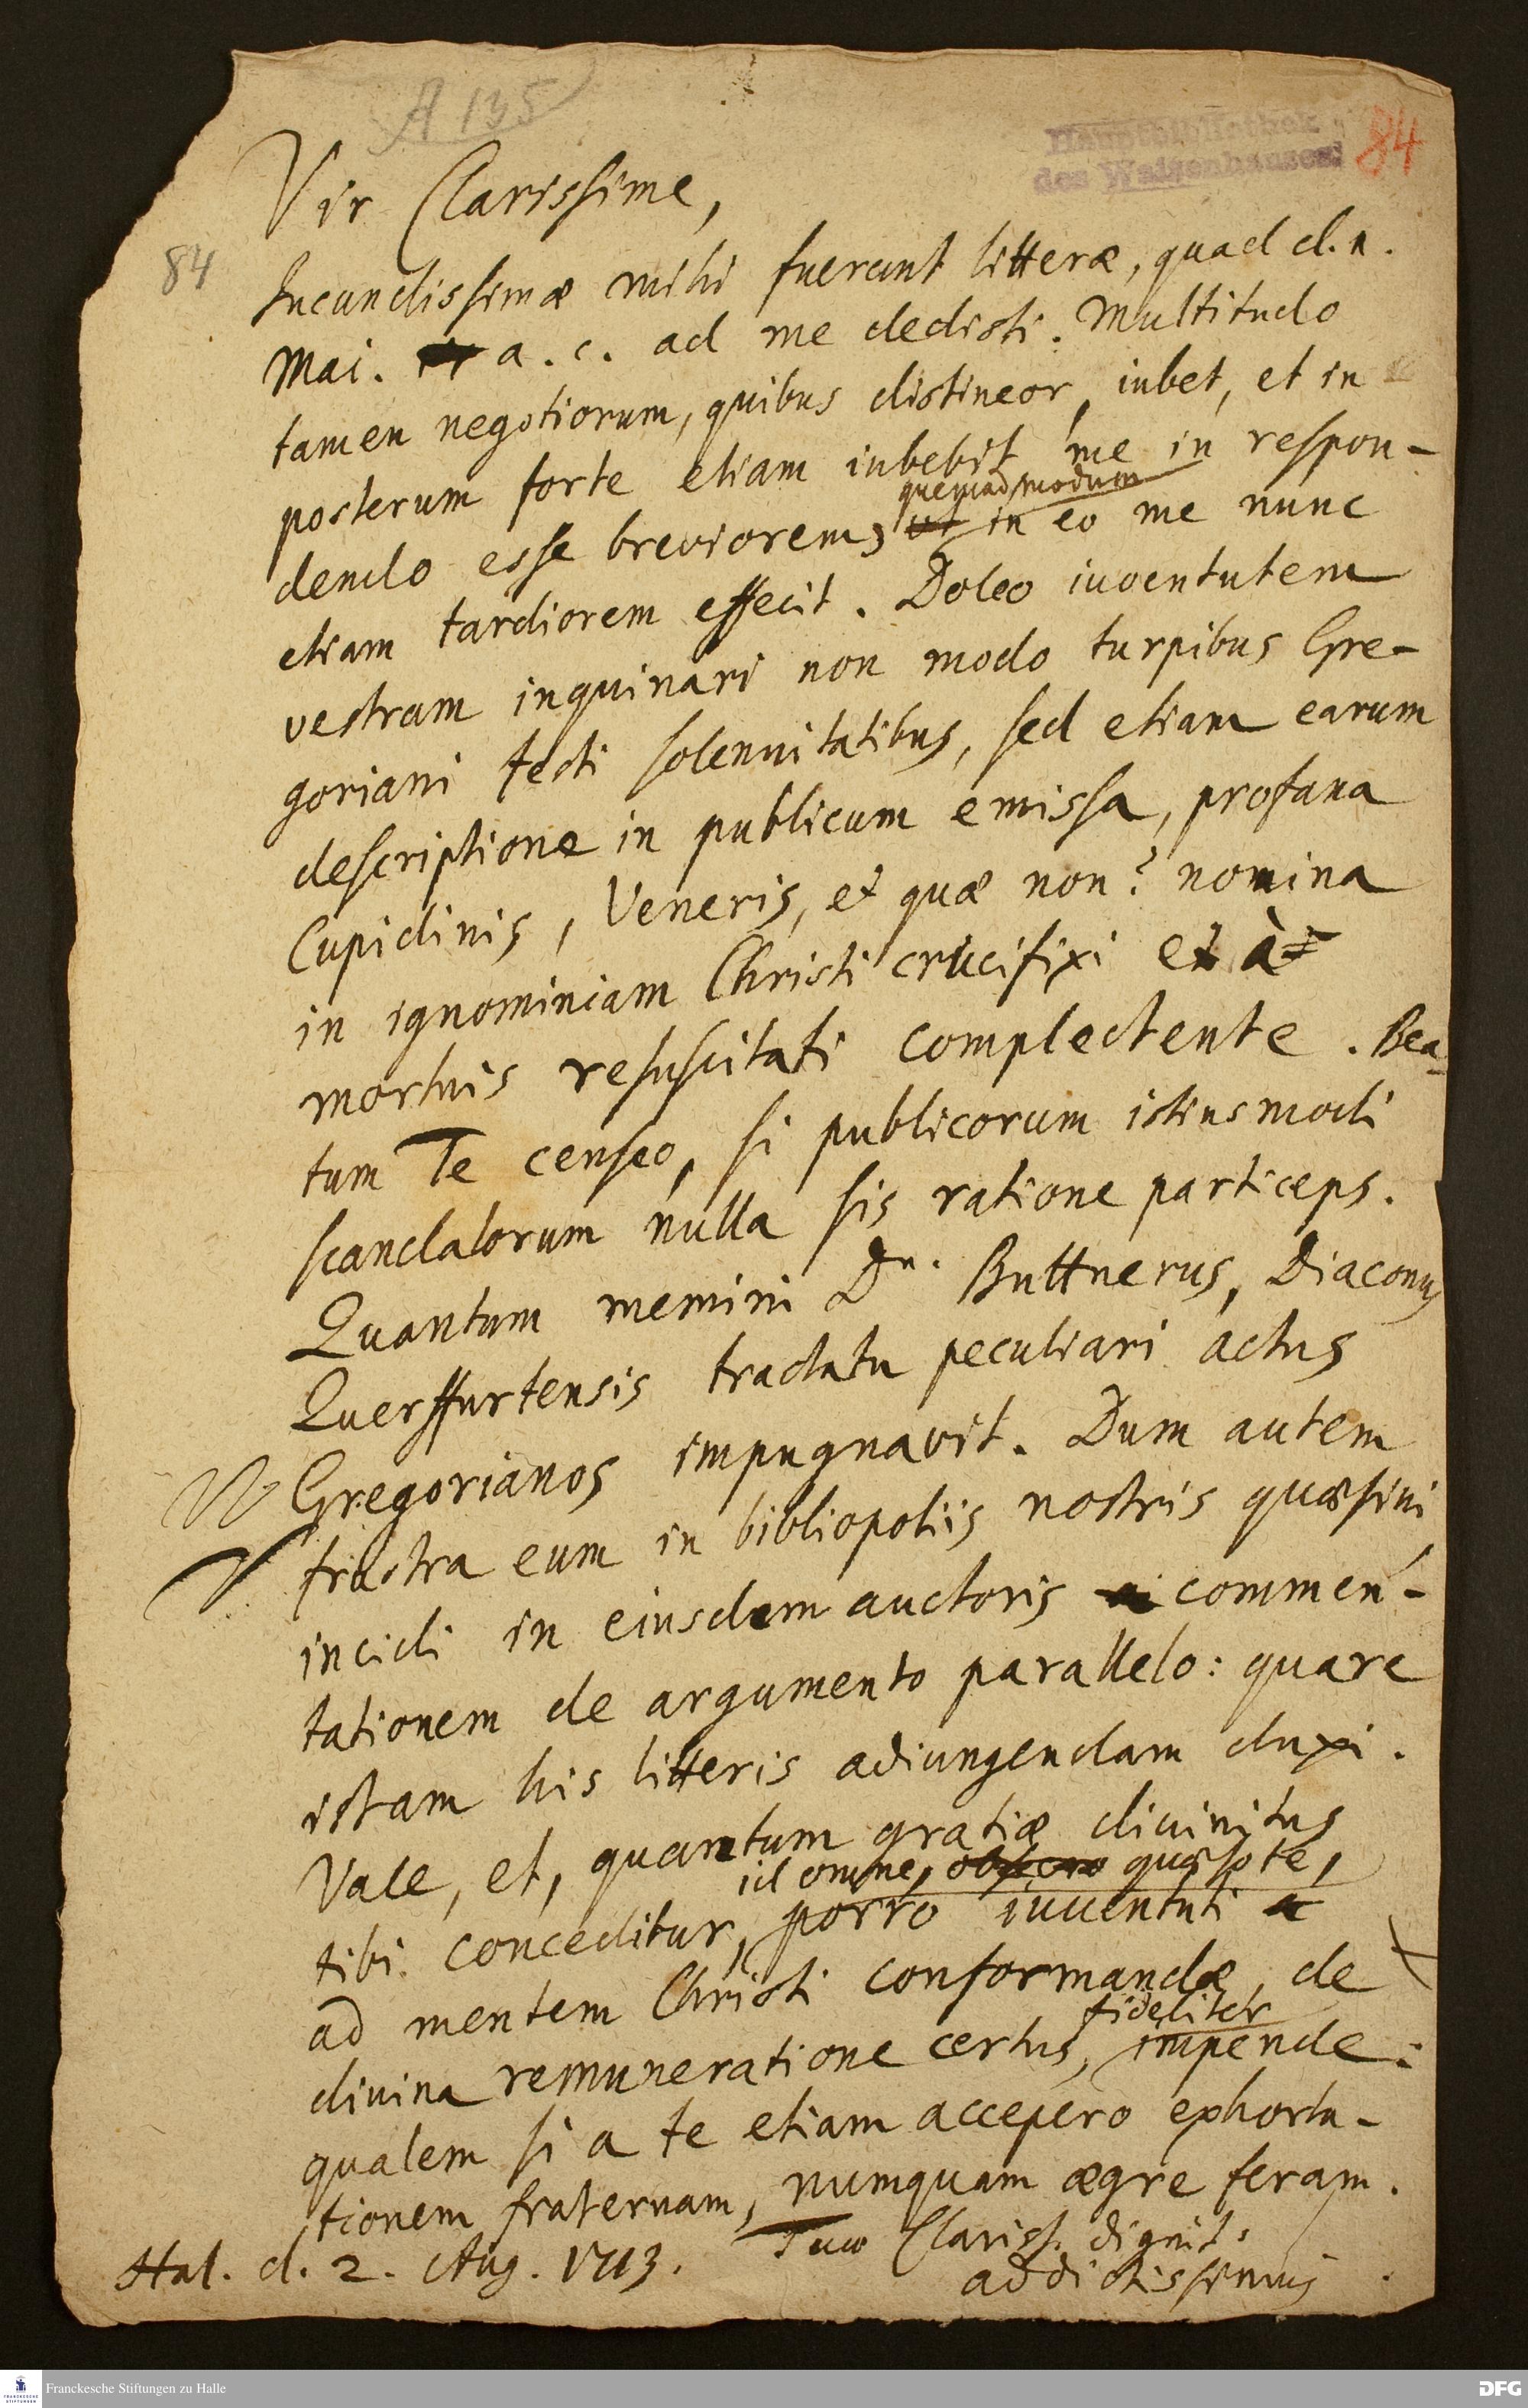 A 135
Hauptbibliothek
des Waisenhauses
84
84
Vir Clarissime,
Iucundissimæ mihi fuerunt litteræ, quad d. n.
Mai. a. c. ad me dedisti. Multitudo
tamen negotiorum, quibus distineor, iubet, et in
posterum forte etiam iubebit me in respon-
quemadmodum
dendo esse breviorem, ut in eo me nunc
etiam tardiorem effecit. Doleo iuventutem
vestram inquinari non modo turpibus Gre-
goriani festi solennitatibus, sed etiam earum
descriptione in publicum emissa, profana
Cupidinis, Veneris, et quæ non? nomina
in ignominiam Christi crucifixi et à
mortuis resuscitati complectente. Bea-
tum Te censeo, si publicorum istiusmodi
scandalorum nulla sis ratione particeps.
Quantum memini Dn. Buttnerus, Diaconus
Querffurtensis tractatu peculiari actus
Gregorianos impugnavit. Dum autem
frustra eum in bibliopoliis nostris quæsivi,
incidi in eiusdem auctoris commen-
tationem de argumento parallelo: quare
istam his litteris adiungendam duxi.
Vale, et, quantum gratiæ divinitus
id omne, obsecro quæso te,
tibi conceditur, porro iuventuti a
ad mentem Christi conformandæ, de
fideliter
divina remuneratione certus, impende:
qualem si a te etiam accepero exhorta-
tionem fraternam, numquam ægre feram.
Hal. d. 2. Aug. 1713. Tuæ Clariss. dignit.
addictissimus
Franckesche Stiftungen zu Halle
DFG